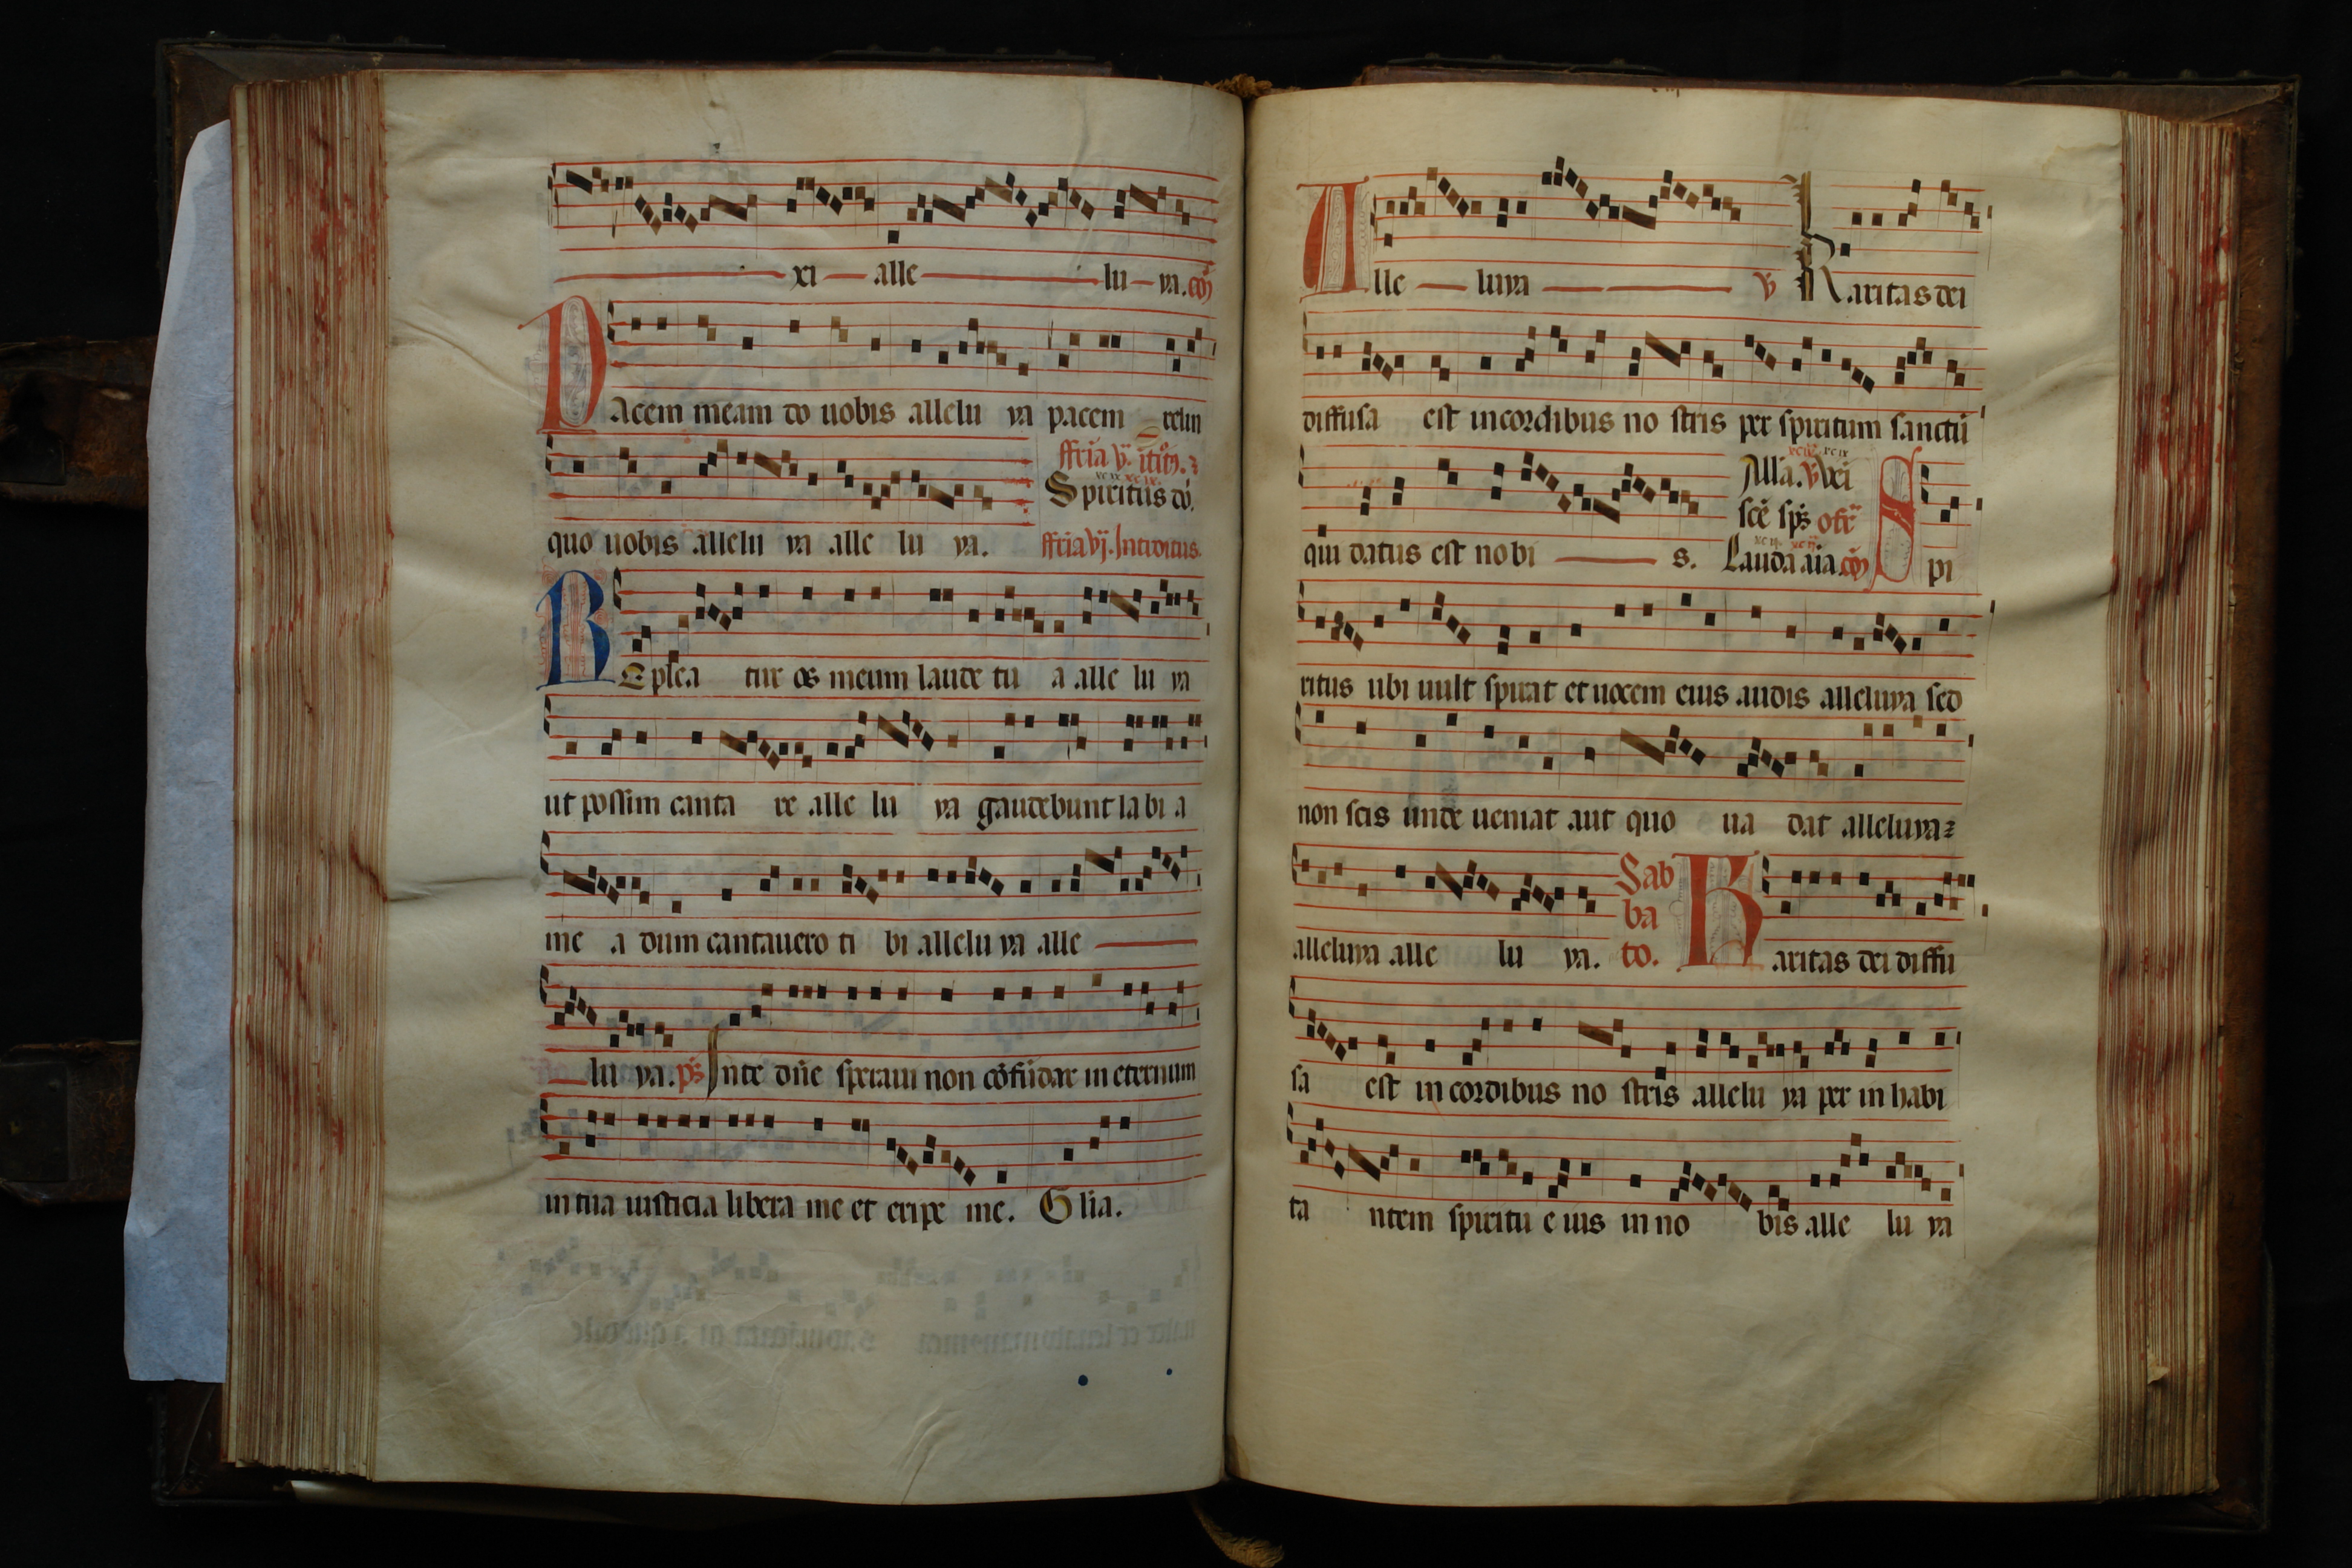 xi alle lu ya. cō
Pacem meam do uobis allelu ya pacem relin
fferia v. itītᷓ.
Spiritus dō.
quo uobis allelu ya alle lu ya. fferia vj. Introitus.
REplea tur os meum laude tu a alle lu ya
ut possim canta re alle lu ya gaudebunt labi a
me a dum cantauero ti bi allelu ya alle
lu ya. ps̄ Inte dn̄e speraui non cōfūdar in eternum
in tua iusticia libera me et eripe me. Glīa.
Alle luya v Karitas dei
diffusa est incordibus no stris per spiritum sanctū
Allā. v Uei
scē sp̄s ofr̄
qui datus est nobi s. Lauda aīa. cō Spi
ritus ubi uult spirat et uocem eius audis alleluya sed
non scis unde ueniat aut quo ua dat alleluya
Sab
ba
alleluya alle lu ya. to. Karitas dei diffu
sa est in cordibus no stris allelu ya per in habi
ta ntem spiritu e ius in no bis alle lu ya